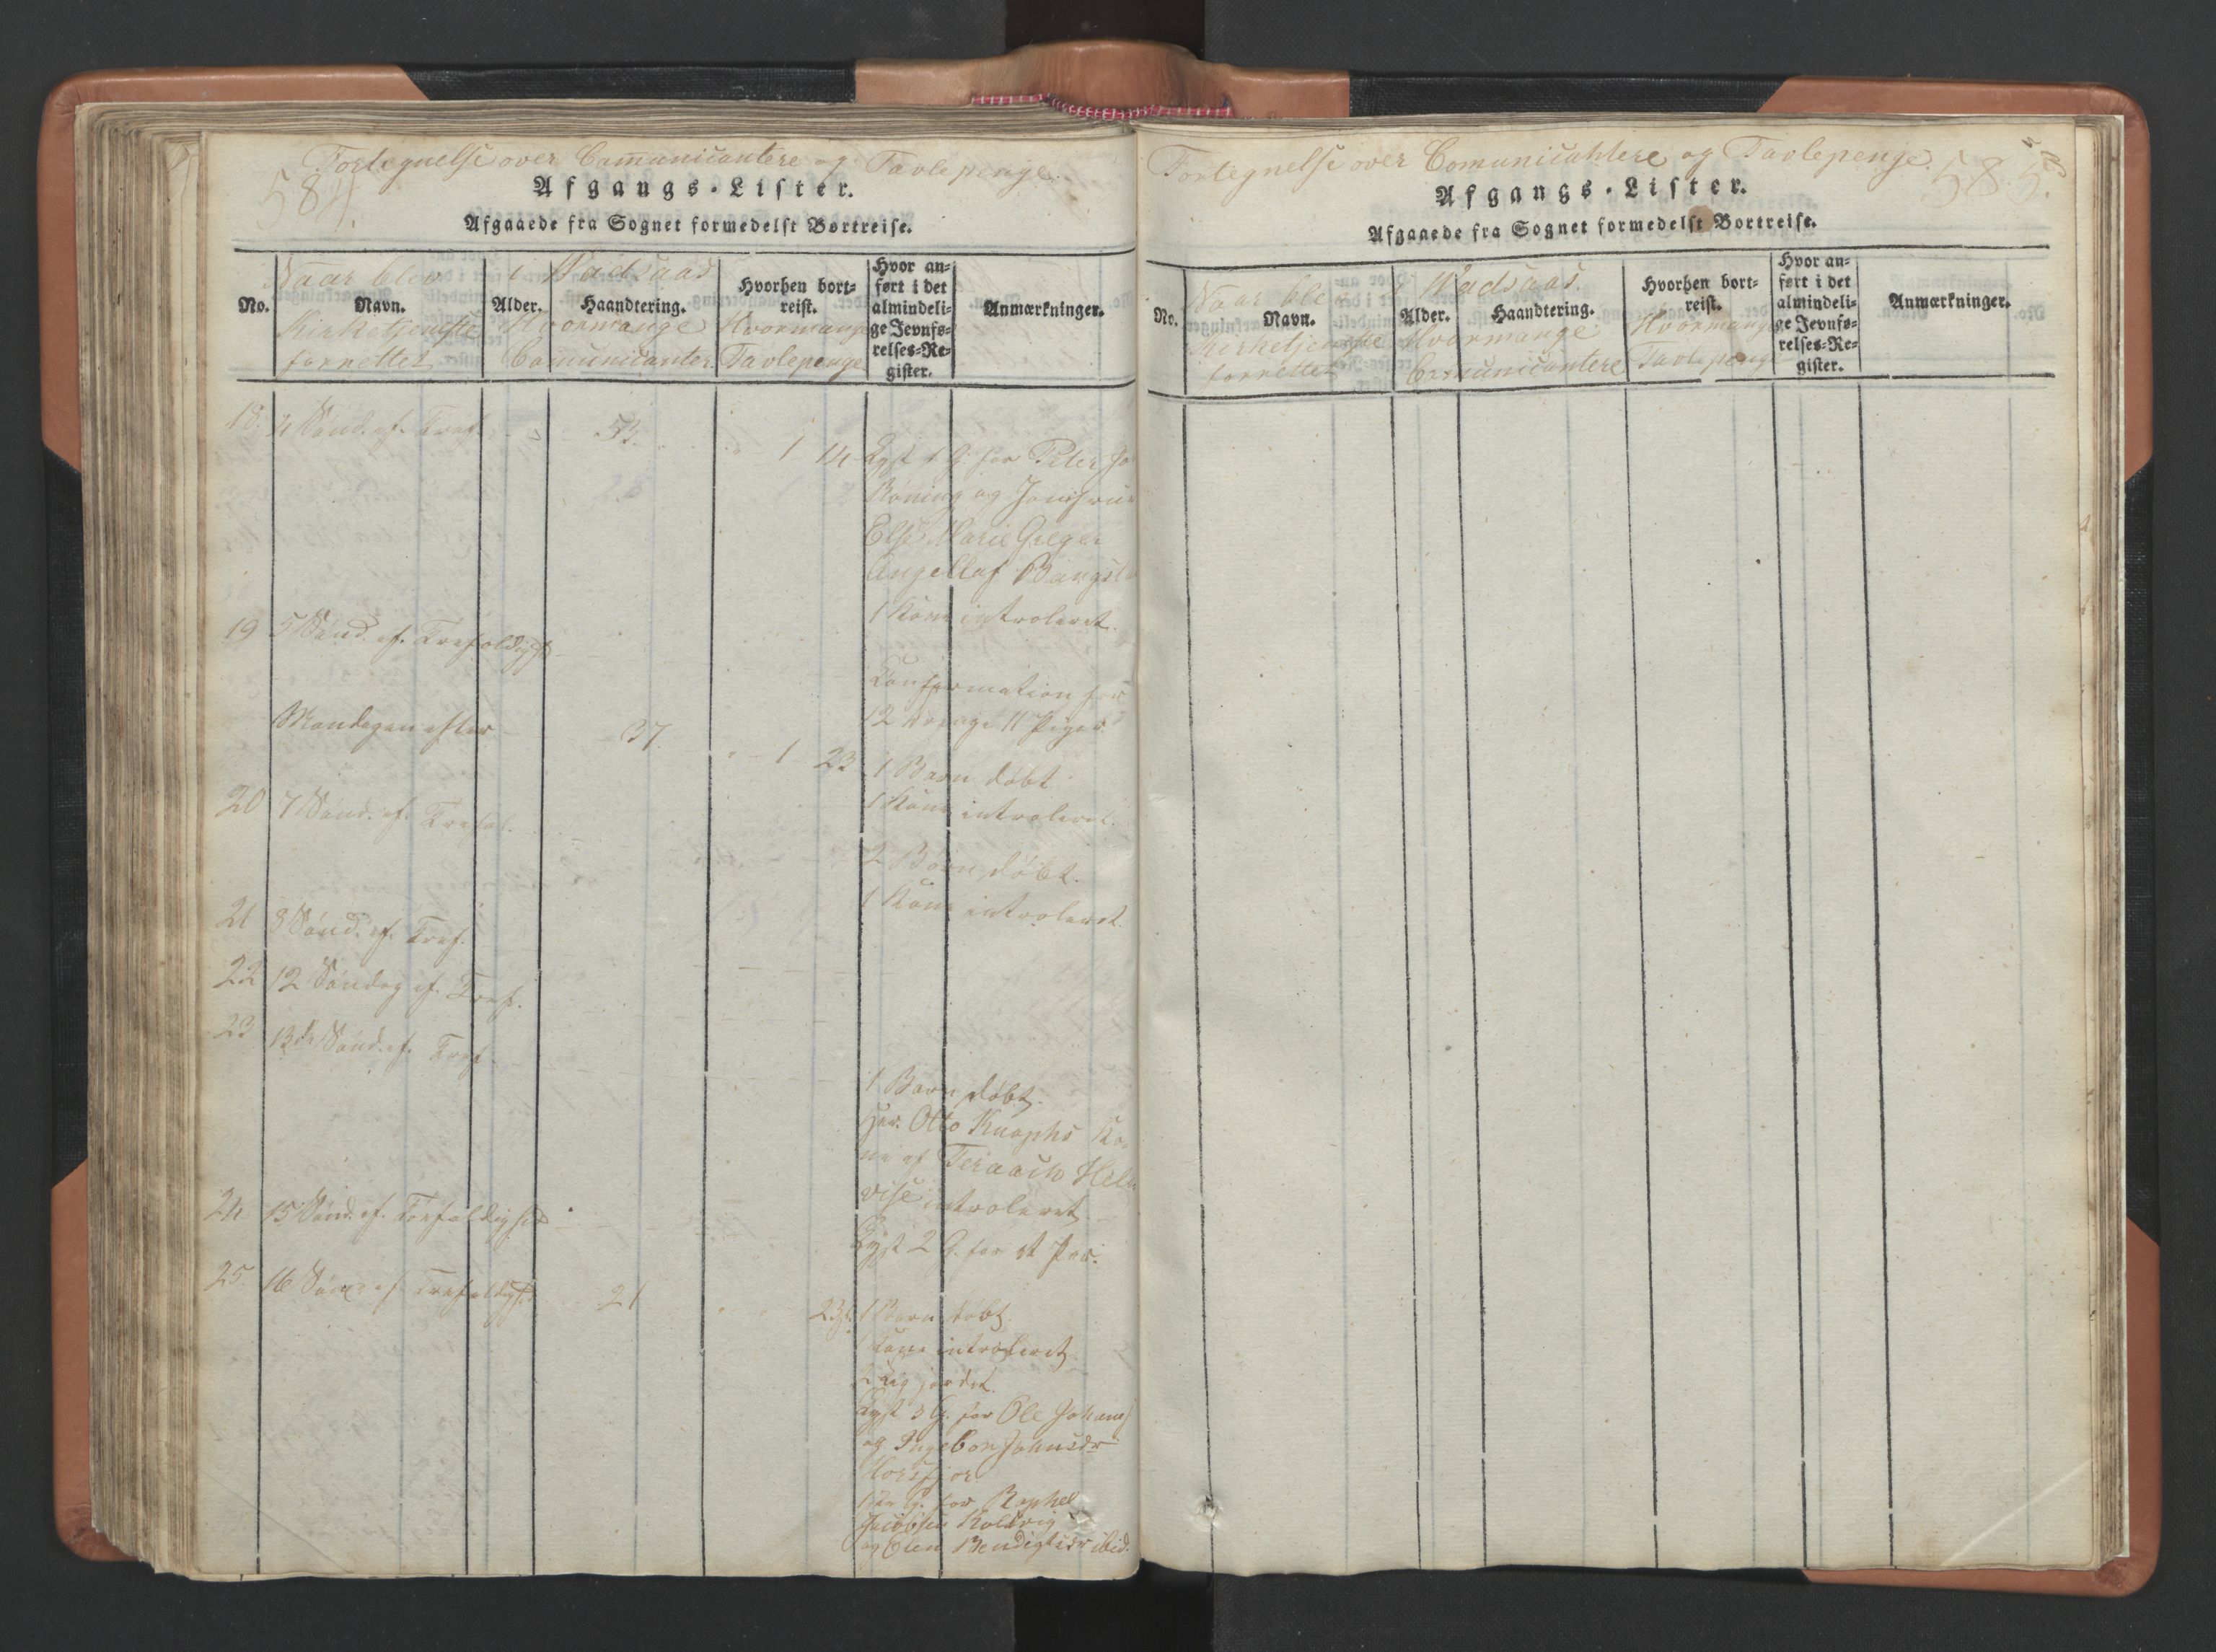 Fortegnelse over Communicantere og Tavlepenge.
584.
Afgangs-Lister.
Afgaaede fra Sognet formedelst Bortreise.
No.
Naar blev
Navn.
Kirketjeneste
forrettet
i Vadsaas
Alder. Haandtering.
Hvormange
Comunicanter
Hvorhen bort-
reist.
Hvormange
Tavlepenge
Hvor an-
ført i det
almindeli-
ge Jevnfø-
relses-Re-
gister.
Anmærkninger.
18. 4 Sønd. ef. Tref. 53. 1 14 Lyst 1 G. for Peter Jo
Røning og Jomfrue
Else Marie Greger
Angell af Bangst
1 Kone introleret.
19 5 Sønd. ef. Trefoldighd
Confirmation for
12 Drenge 11 Piger.
Mandagen efter 37. 1 23 1 Barn døbt
1 Kone introleret.
20 7 Sønd. ef. Trefol.
2 Børn døbt.
1 Kone introleret.
21 8 Sønd. ef. Tref.
22 12 Søndag ef. Tref.
23 13de Sønd. ef. Tref.
1 Barn døbt.
Hr. Otto Knophs Ko-
ne af Teraach Hele
vise introleret
24 15 Sønd. ef. Trefoldighed
Lyst 2 G. for et Par.
25 16 Sønd. ef. Trefoldighd 21 23 1 Barn døbt
1 Kone introleret
2 Lig jordet.
Lyst 3 G. for Ole Johans
og Ingebor Johnsdr
Horsfjor
G. for Raphel
Jacobsen Kolsvig
og Olen Bendigtsdr ibid.
Fortegnelse over Comunicantere og Tavlepenge.
585.
Afgangs-Lister.
Afgaaede fra Sognet formedelst Bortreise.
No.
Naar blev
Navn.
Kirketjeneste
forrettet
i Vadsaas.
Alder. Haandtering.
Hvormange
Comunicantere
Hvorhen bort-
reist.
Hvormange
Tavlepenge
Hvor an-
ført i det
almindeli-
ge Jevnfø-
relses-Re-
gister.
Anmærkninger.